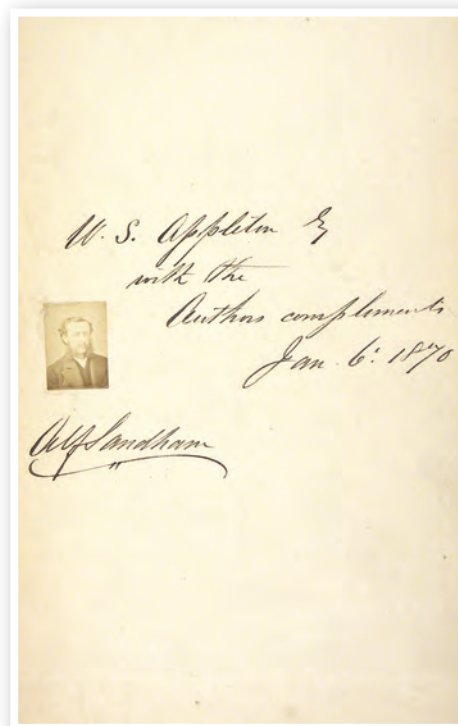 W. S. Appleton Esq
with the
Authors compliments
Jan. 6: 1870
Alf Sandham